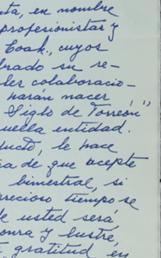 ta, en nombre
profesionistas y
Coah., cuyos
brado su re-
der colaboracio-
harán nacer
Siglo de Torreón",
uella entidad.
ducto, le hace
ca de que acepte
bimestral, si
recioso tiempo se
le usted será
onra y lustre,
gratitud en